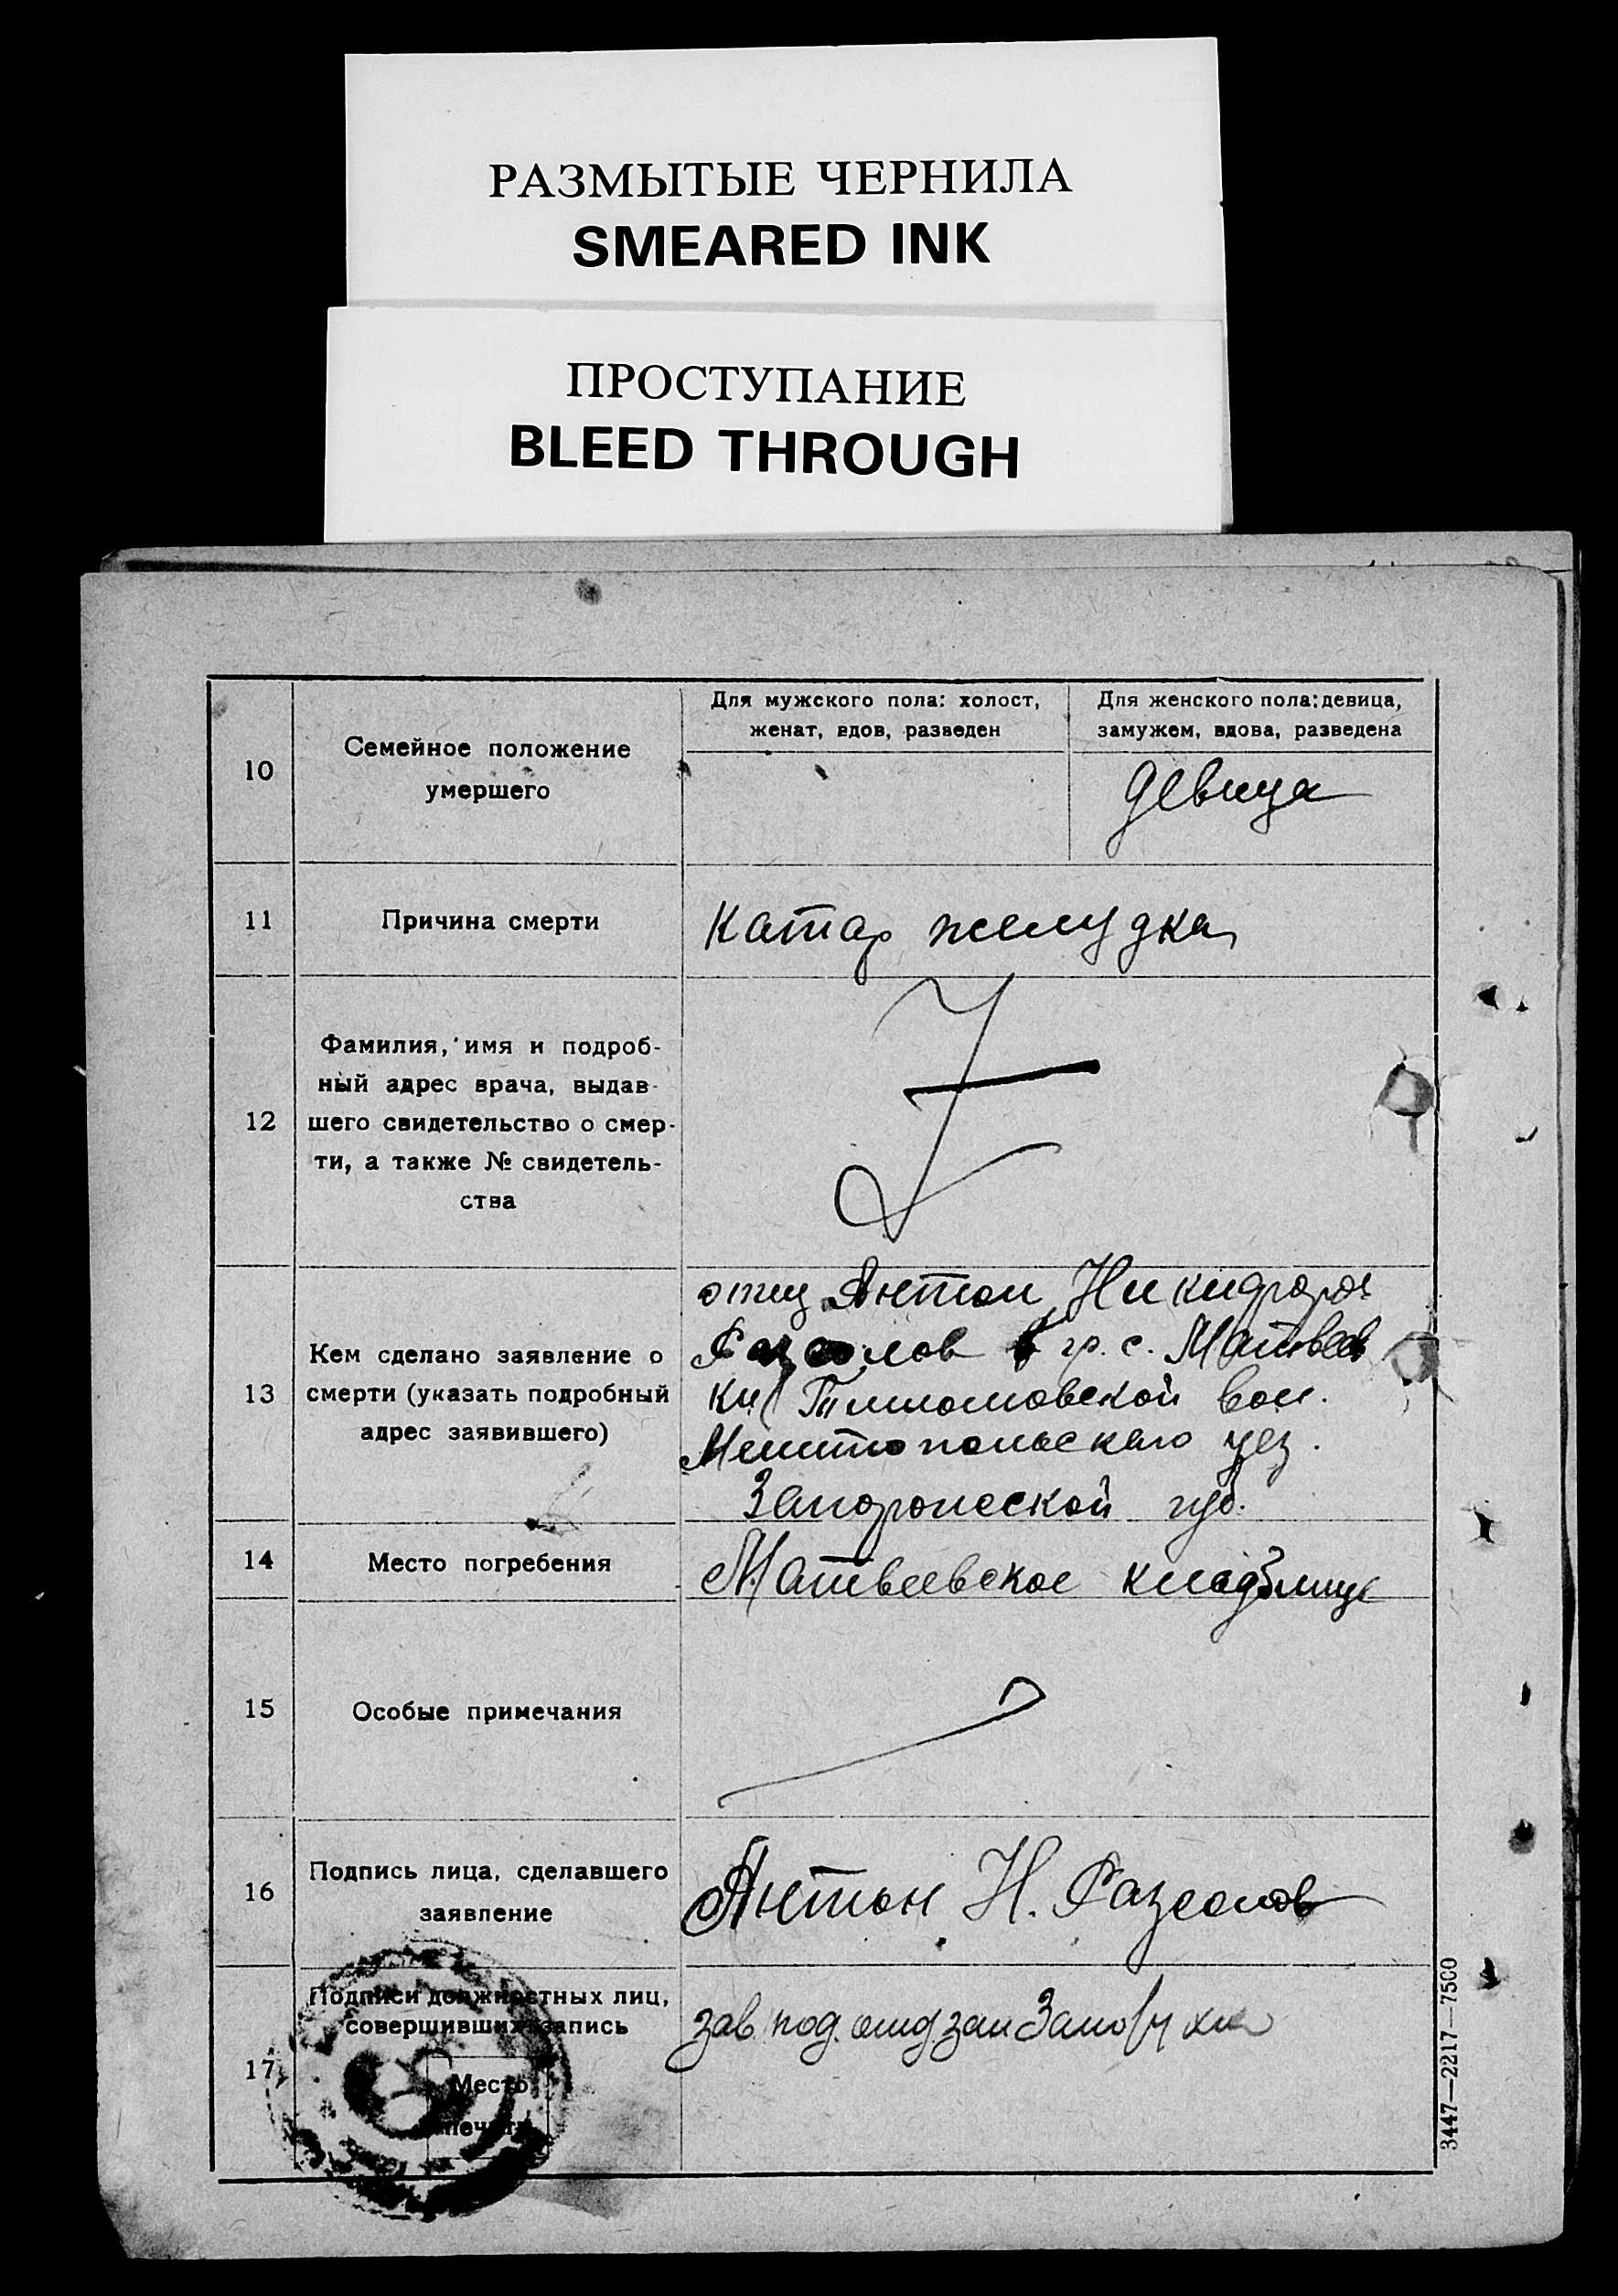 РАЗМЫТЫЕ ЧЕРНИЛА
SMEARED INK
ПРОСТУПАНИЕ
BLEED THROUGH
10
Семейное положение
умершего
Для мужского пола: холост,
женат, вдов, разведен
Для женского пола: девица,
замужем, вдова, разведена
девица
11
Причина смерти
Катар желудка
12
Фамилия, имя и подроб-
ный адрес врача, выдав-
шего свидетельство о смер-
ти, а также № свидетель-
ства
13
Кем сделано заявление о
смерти (указать подробный
адрес заявившего)
отец Антон Никифоров
лов гр. с. Матвеев
ки вол.
Мелитопольского уез.
Запорожской губ.
14
Место погребения
Матвеевское кладбище
15
Особые примечания
16
Подпись лица, сделавшего
заявление
Антон Н.
17
Подписи должностных лиц,
совершивших запись
Место
печати
зав под отд зап
3447—2217—7500